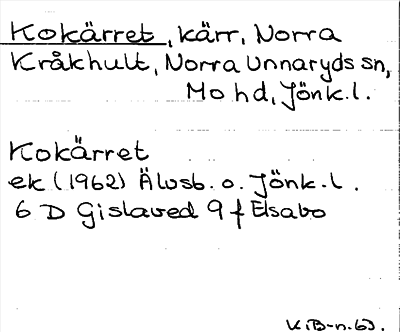 Kokärret, kärr, Norra
Kråkhult, Norra Unnaryds sn,
Mo hd, Jönk.l.
Kokärret
ek (1962) Älvsb. o. Jönk.l.
6 D Gislaved 9 f Elsabo